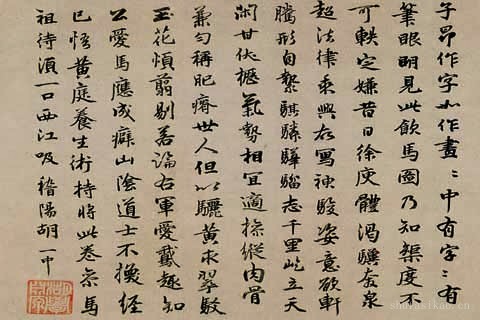 子昂作字如作畫〻中有字〻有
筆眼明見此飲馬圖乃知榘度不
可軼定嫌昔日徐庾體渴驥奔泉
超法律乘興寫神駿姿意欲軒
騰形自縶騏驎驊騮志千里屹立天
閑甘伏櫪氣勢相宜適操縱肉骨
兼勻稱肥瘠世人但以驪黃求翠駮
玉花煩翦剔若論右軍愛鵞趣知
公愛馬應成癖山陰道士不換經
已悟黃庭養生術持將此卷叅馬
祖待須一口西江吸 稽陽胡一中